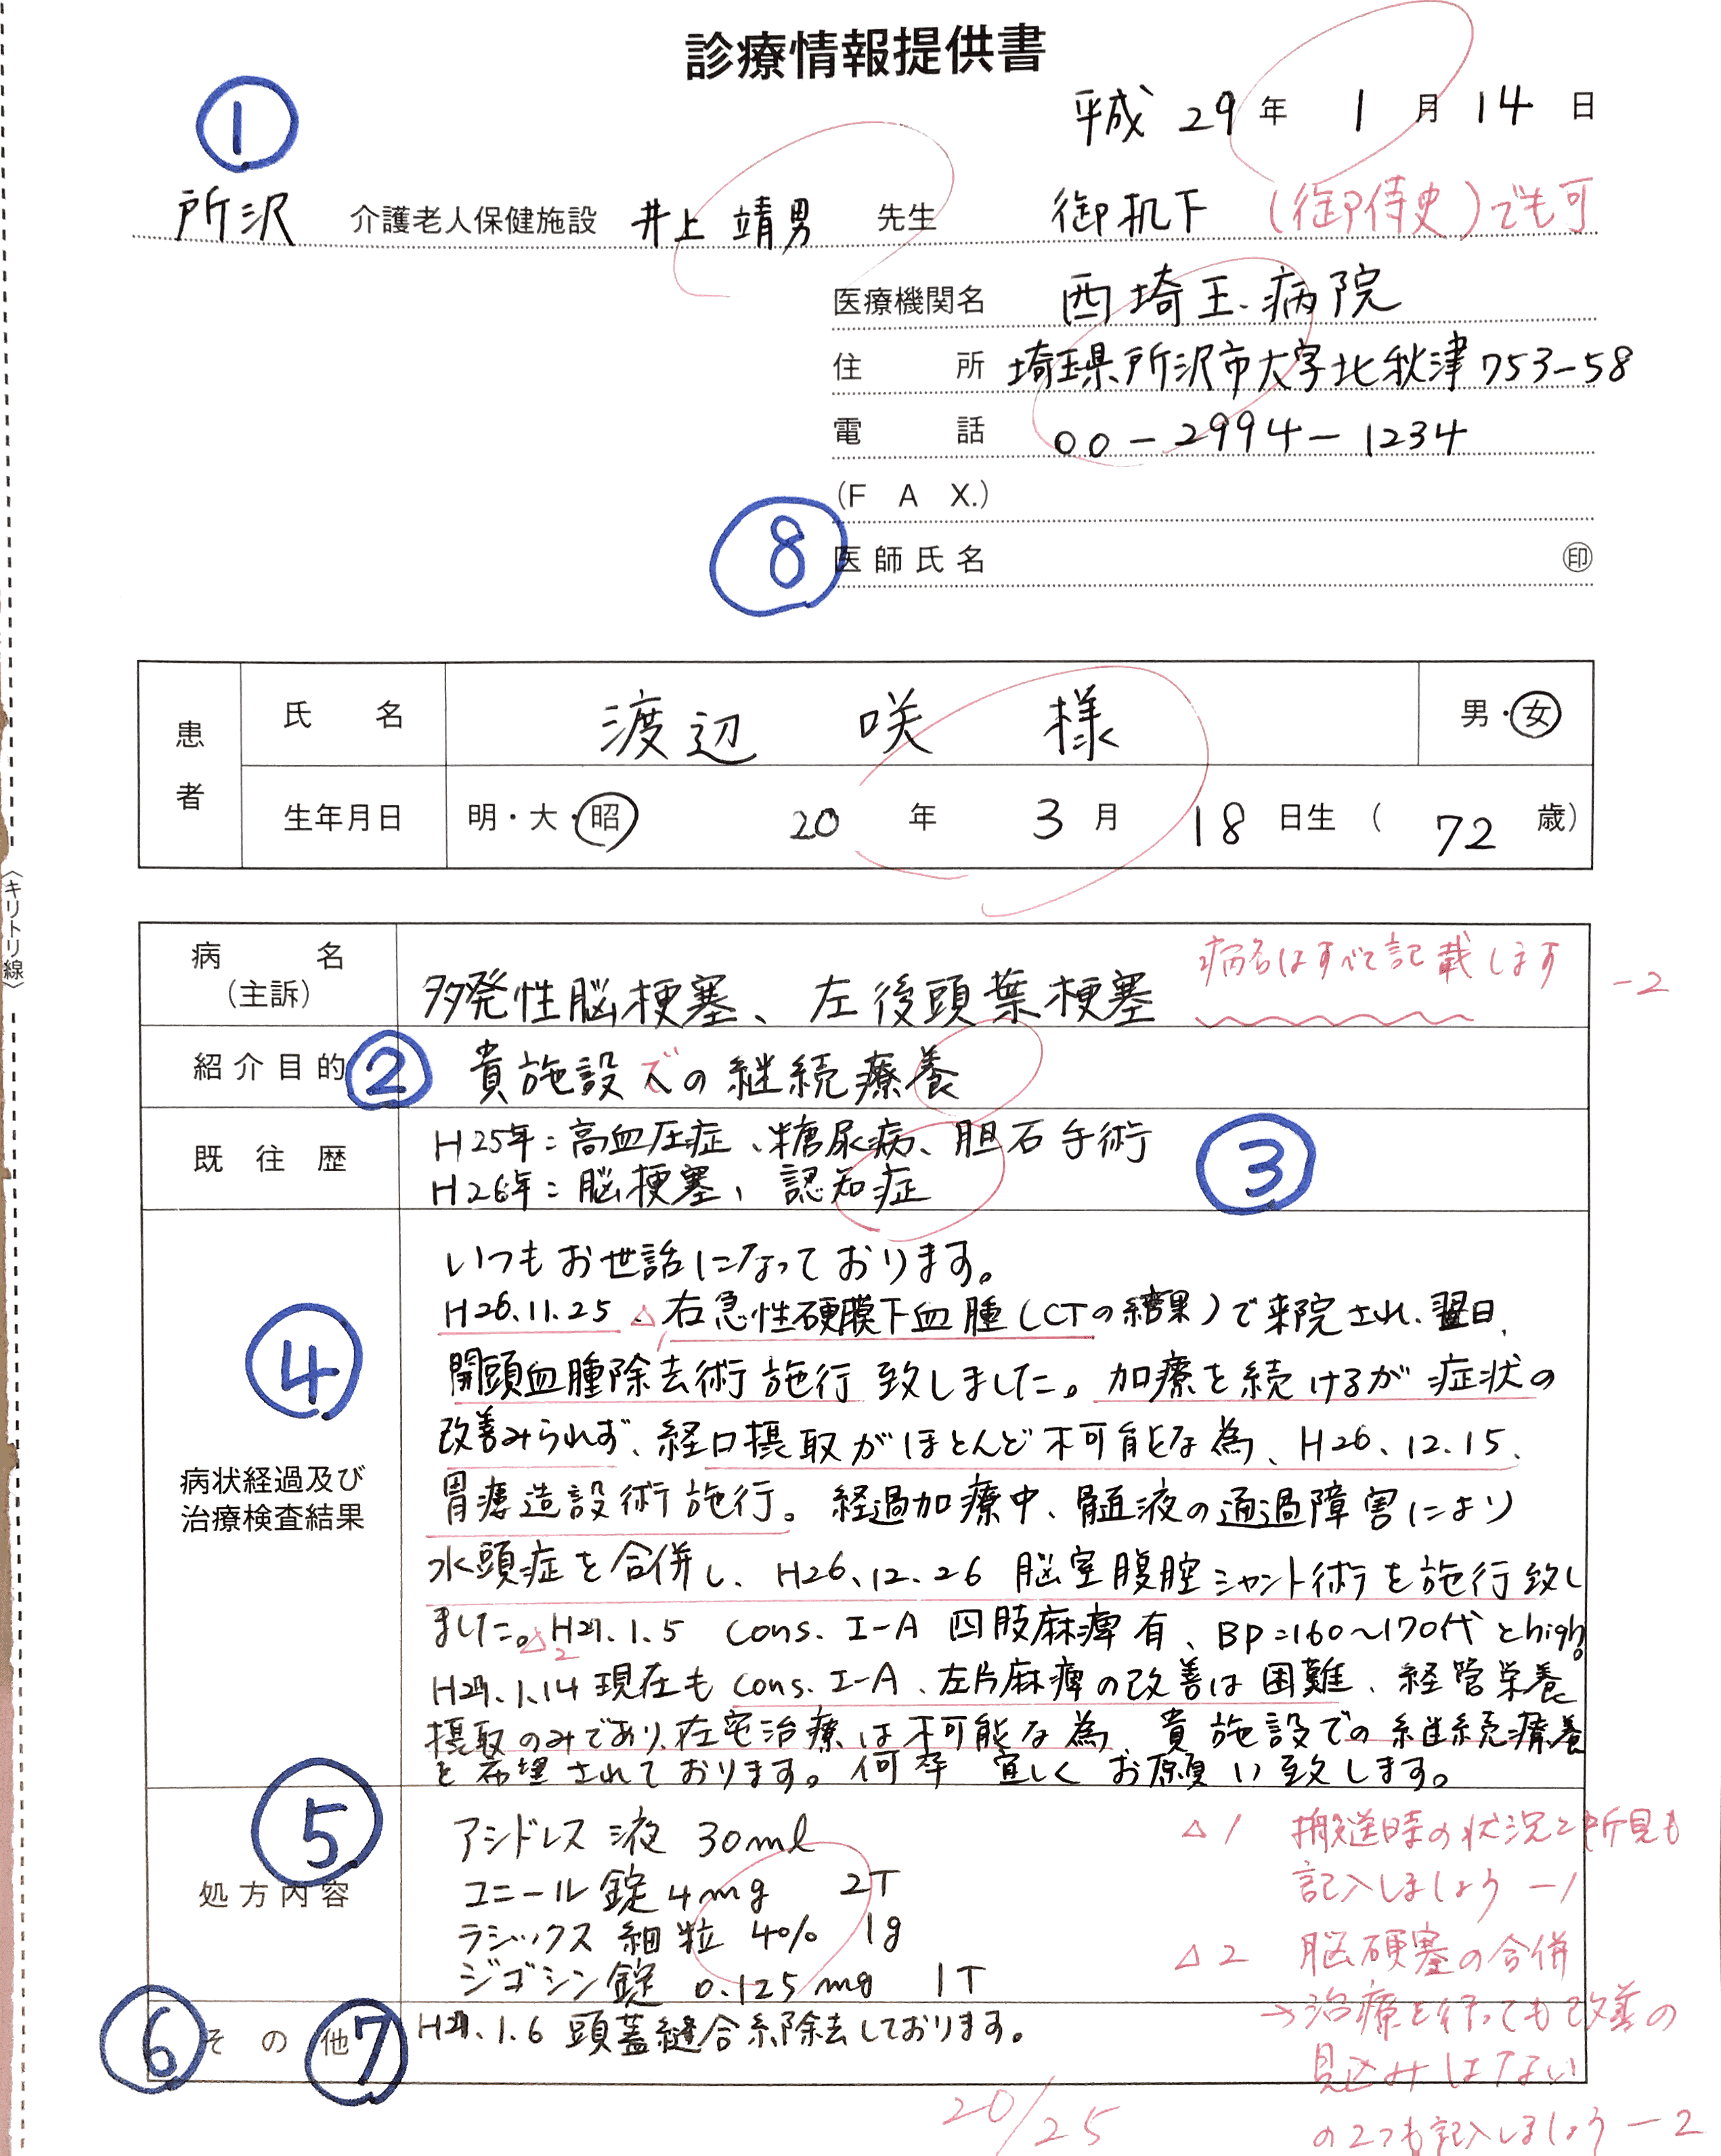 診療情報提供書
①
平成 29 年 1 月 14 日
所沢 介護老人保健施設 井上 靖男 先生 御机下 (御侍史)でも可
医療機関名 西埼玉病院
住所 埼玉県所沢市大字北秋津753-58
電話 00-2994-1234
(FAX.)
⑧ 医師氏名 ㊞
患者
氏名 渡辺 咲 様 男・女
生年月日 明・大・昭 20 年 3 月 18 日生 ( 72 歳)
〈キリトリ線〉
病名(主訴) 多発性脳梗塞、左後頭葉梗塞 病名はすべて記載します -2
紹介目的 ② 貴施設での継続療養
既往歴 H25年:高血圧症、糖尿病、胆石手術
H26年:脳梗塞、認知症 ③
④
病状経過及び
治療検査結果
いつもお世話になっております。
H26.11.25 △1 右急性硬膜下血腫(CTの結果)で来院され、翌日、
開頭血腫除去術施行致しました。加療を続けるが症状の
改善みられず、経口摂取がほとんど不可能な為、H26.12.15、
胃瘻造設術施行。経過加療中、髄液の通過障害により
水頭症を合併し、H26.12.26 脳室腹腔シャント術を施行致し
ました。△2 H29.1.5 cons. I-A 四肢麻痺有、BP=160~170代とhigh。
H29.1.14 現在も cons. I-A、左片麻痺の改善は困難、経管栄養
摂取のみであり、在宅治療は不可能な為、貴施設での継続療養
を希望されております。何卒宜しくお願い致します。
⑤
処方内容
アシドレス液 30ml
コニール錠 4mg 2T
ラシックス細粒 4% 1g
ジゴシン錠 0.125mg 1T
△1 搬送時の状況と所見も
記入しましょう -1
△2 脳硬塞の合併
→治療を行っても改善の
見込みはない
の2つも記入しましょう -2
⑥ その他 ⑦ H29.1.6 頭蓋縫合糸除去しております。
20/25